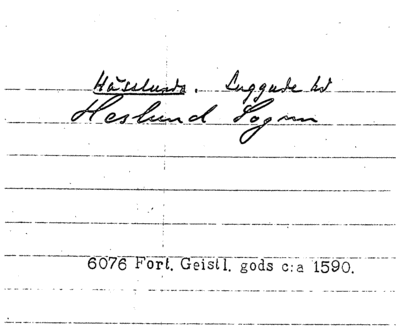 Hässlunda. Luggude hd
Heslund Sogn
6076 Fort. Geistl. gods c:a 1590.